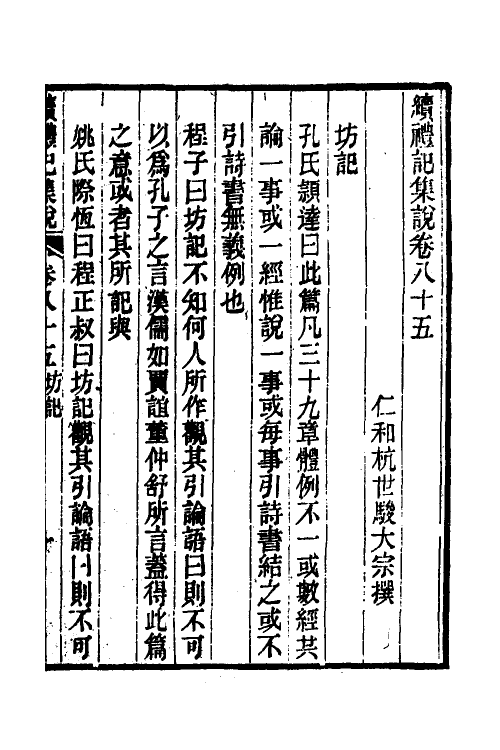 續禮記集說卷八十五
仁和杭世駿大宗撰
坊記
孔氏頴達曰此篇凡三十九章體例不一或數經共
論一事或一經惟說一事或每事引詩書結之或不
引詩書無義例也
程子曰坊記不知何人所作觀其引論語曰則不可
以爲孔子之言漢儒如賈誼董仲舒所言蓋得此篇
之意或者其所記與
姚氏際恆曰程正叔曰坊記觀其引論語曰則不可
續禮記集說 卷八十五坊記